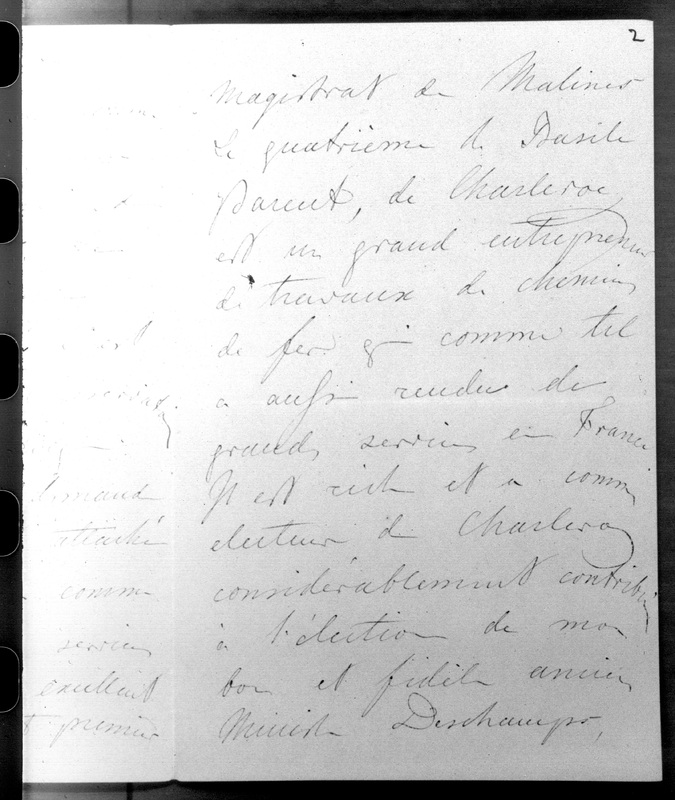 2
magistrat de Malines
Le quatrième de Basile
Parent, de Charleroi,
est un grand entrepreneur
de travaux de chemins
de fer qi comme tel
a aussi rendu de
grands services en France
Il est riche et a comme
electeur de Charleroy
considérablement contribué
à l'élection de mon
bon et fidèle ancien
Ministre Deschamps,
attaché
comme
services
excellent
premier